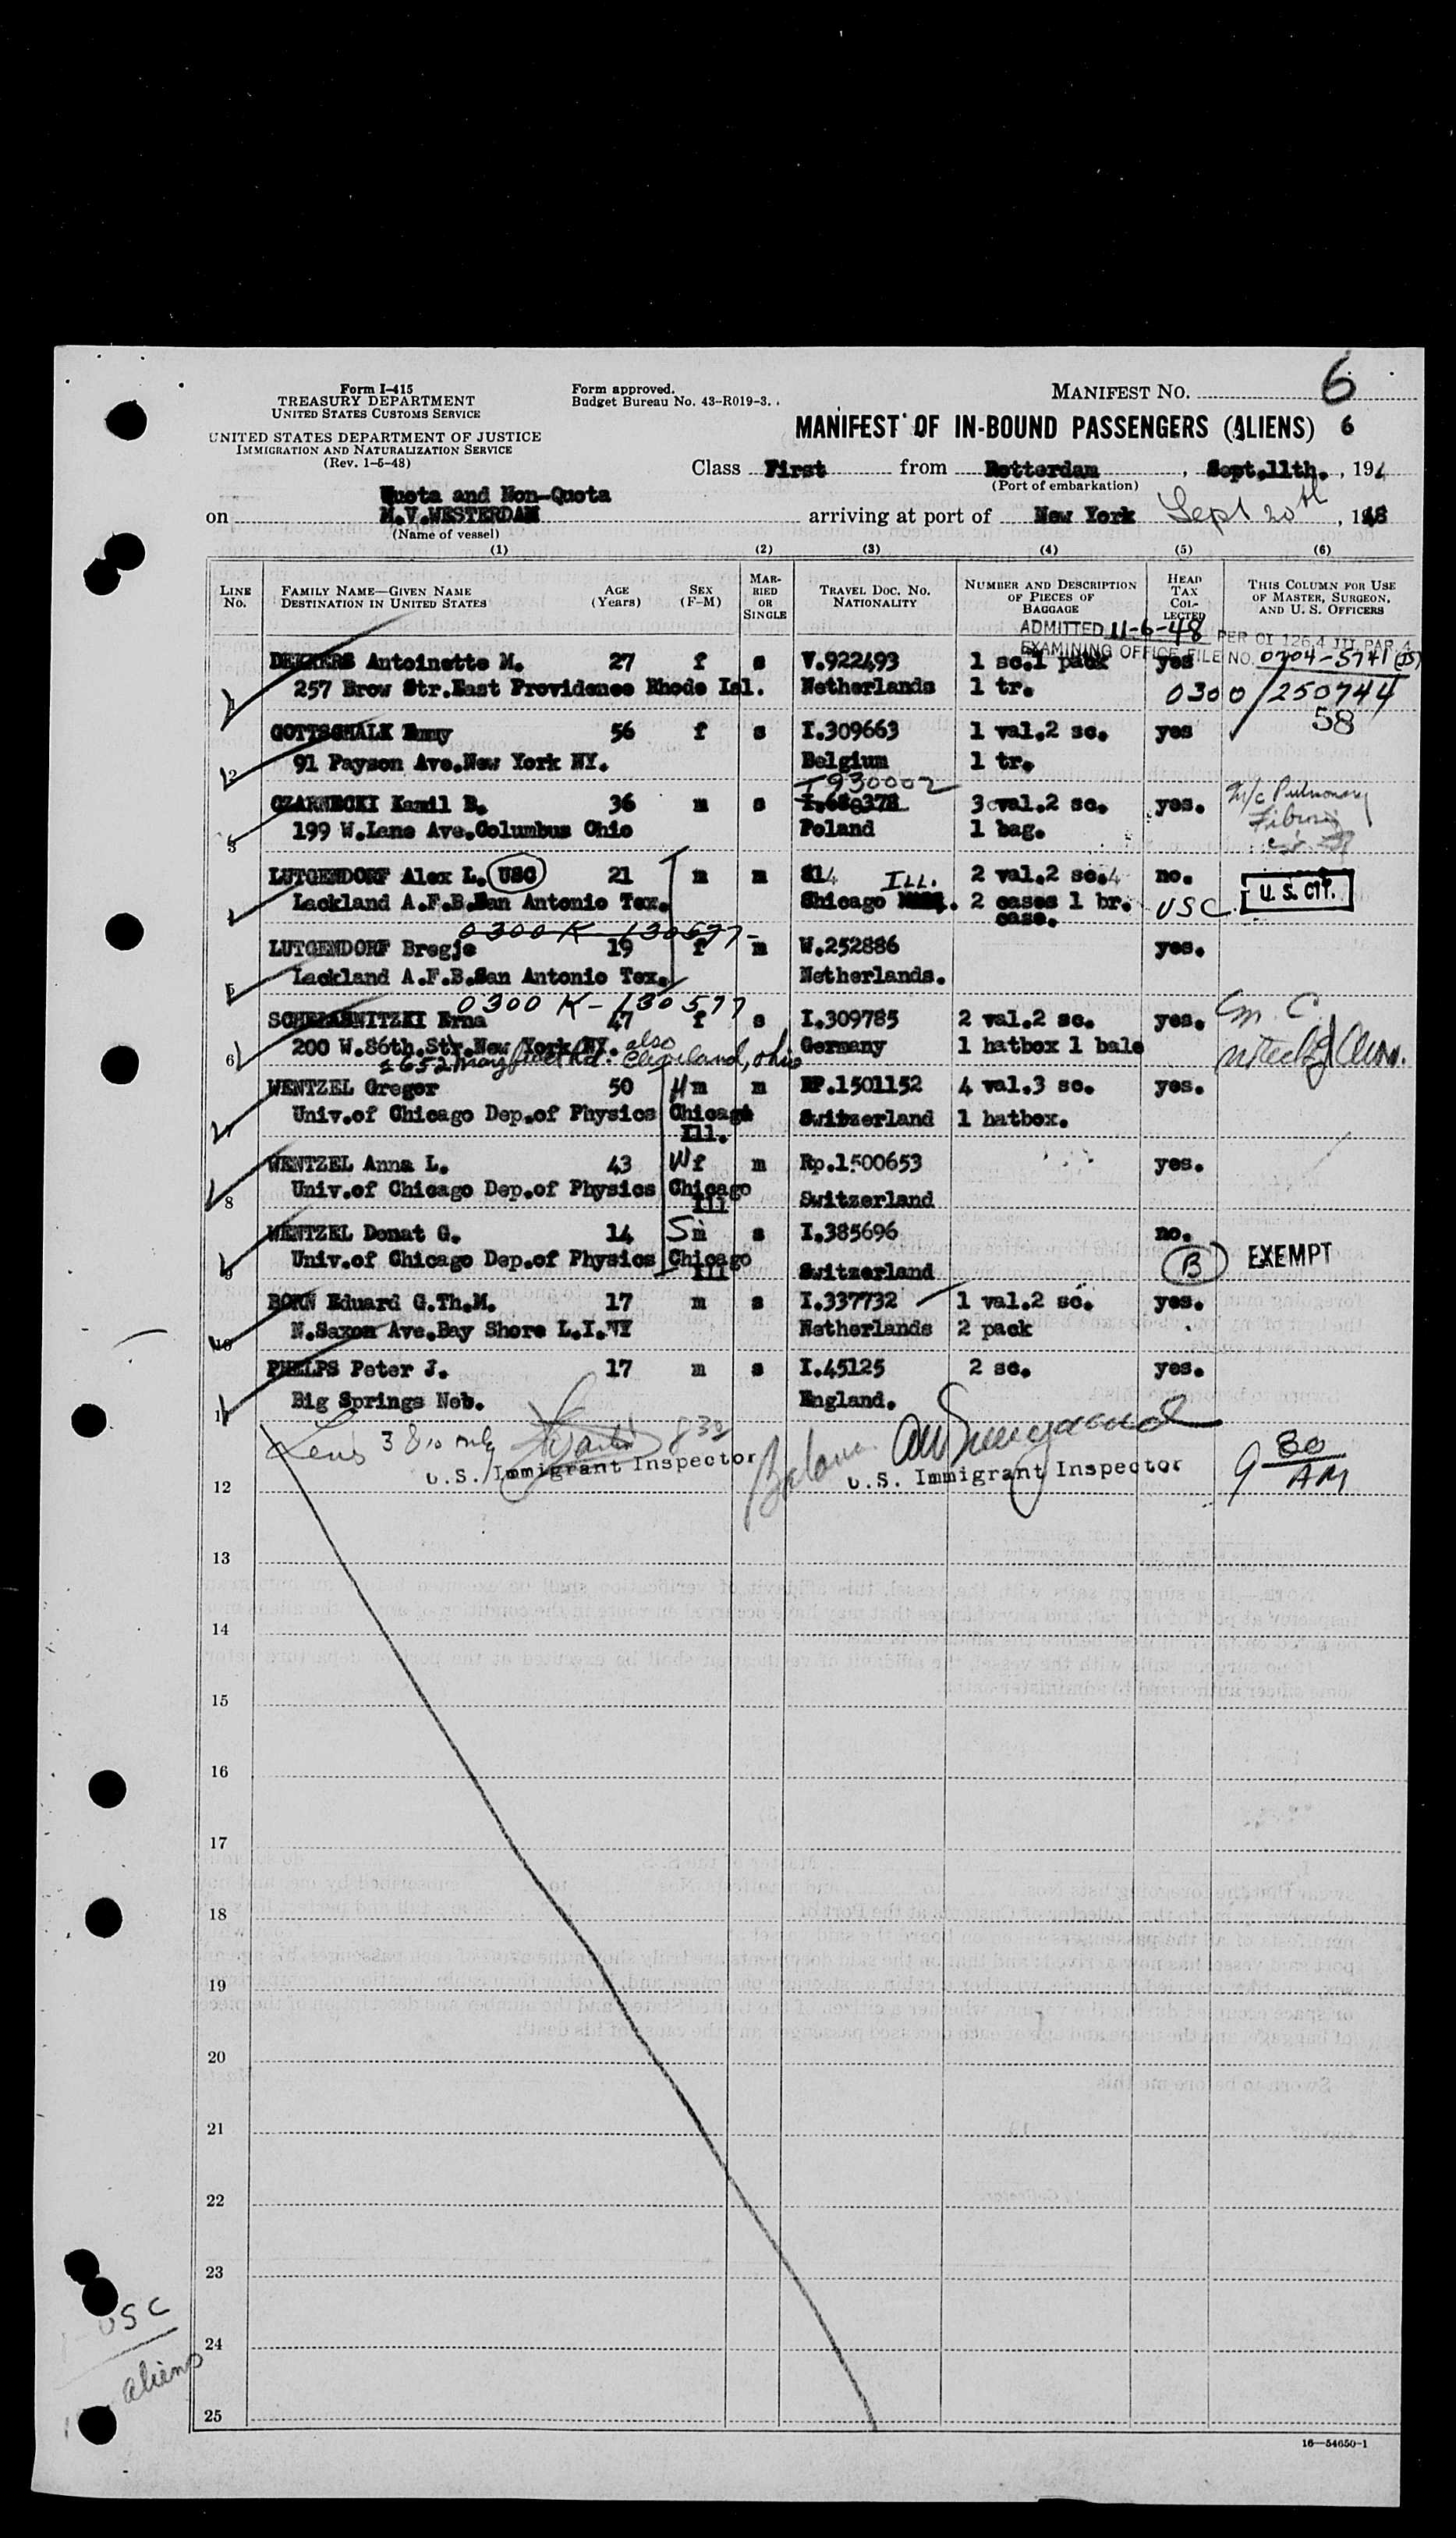 Form I-415
TREASURY DEPARTMENT
UNITED STATES CUSTOMS SERVICE
UNITED STATES DEPARTMENT OF JUSTICE
IMMIGRATION AND NATURALIZATION SERVICE
(Rev. 1-5-48)
Form approved.
Budget Bureau No. 43-R019-3.
MANIFEST NO. 6
MANIFEST OF IN-BOUND PASSENGERS (ALIENS) 6
Class First from Rotterdam, Sept.11th., 194
(Port of embarkation)
Quota and Non-Quota
on M.V.WESTERDAM arriving at port of New York Sept 20th, 1948
(Name of vessel)
(1) (2) (3) (4) (5) (6)
LINE No. FAMILY NAME—GIVEN NAME DESTINATION IN UNITED STATES AGE (Years) SEX (F-M) MARRIED OR SINGLE TRAVEL DOC. NO. NATIONALITY NUMBER AND DESCRIPTION OF PIECES OF BAGGAGE HEAD TAX COLLECTED THIS COLUMN FOR USE OF MASTER, SURGEON, AND U. S. OFFICERS
ADMITTED 11-6-48 PER OI 126.4 III PAR 4
EXAMINING OFFICE FILE NO. 0704-5741 (JS)
DEKKERS Antoinette M. 27 f s V.922493 1 sc.1 pack yes
1 257 Brow Str.East Providence Rhode Isl. Netherlands 1 tr. 0300/250744
58
GOTTSCHALK Emmy 56 f s I.309663 1 val.2 sc. yes
2 91 Payson Ave.New York NY. Belgium 1 tr.
I930002
CZARNECKI Kamil B. 36 m s I.686378 3 val.2 sc. yes. M/C Pulmonary
3 199 W.Lane Ave.Columbus Ohio Poland 1 bag. Fibrosis
LUTGENDORF Alex L. USC 21 m m 814 ILL. 2 val.2 sc.4 no. U. S. CIT.
Lackland A.F.B.San Antonio Tex. Chicago 2 cases 1 br. USC
case.
0300 K-130577-
LUTGENDORF Bregje 19 f m W.252886 yes.
5 Lackland A.F.B.San Antonio Tex. Netherlands.
0300 K-130577
Erna 47 f s I.309785 2 val.2 sc. yes. m. C.
6 200 W.86th.Str.New York NY. also Germany 1 hatbox 1 bale
Cleveland, ohio
WENTZEL Gregor 50 Hm m RP.1501152 4 val.3 sc. yes.
7 Univ.of Chicago Dep.of Physics Chicago Switzerland 1 hatbox.
Ill.
WENTZEL Anna L. 43 Wf m Rp.1500653 yes.
8 Univ.of Chicago Dep.of Physics Chicago Switzerland
Ill
WENTZEL Donat G. 14 Sm s I.385696 no.
9 Univ.of Chicago Dep.of Physics Chicago Switzerland B EXEMPT
Ill
BORN Eduard G.Th.M. 17 m s I.337732 1 val.2 sc. yes.
10 N.Saxon Ave.Bay Shore L.I.NY Netherlands 2 pack
PHELPS Peter J. 17 m s I.45125 2 sc. yes.
11 Big Springs Neb. England.
Lens 3 8 10 only 832
U.S. Immigrant Inspector U.S. Immigrant Inspector 9 30 AM
12
13
14
15
16
17
18
19
20
21
22
23
24
25
USC
aliens
16—54650-1